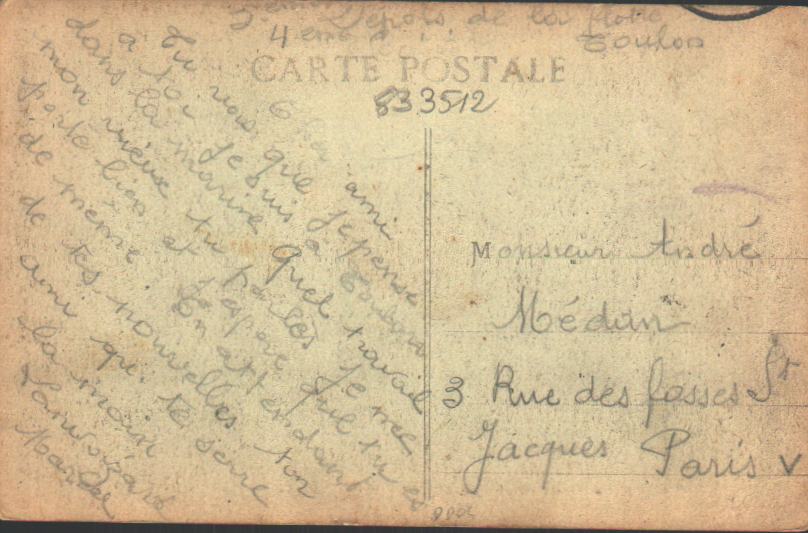 Dépôts de la flotte
4eme
Toulon
CARTE POSTALE
833512
Cher ami
Tu vois que je pense
à toi je suis à Toulon
dans la marine Quel travail
mon vieux tu parles Je me
porte bien et j'espère que tu es
de même. En attendant
de tes nouvelles ton
ami qui te serre
la main
Marcel
Monsieur André
Médan
3 Rue des fosses St
Jacques Paris V